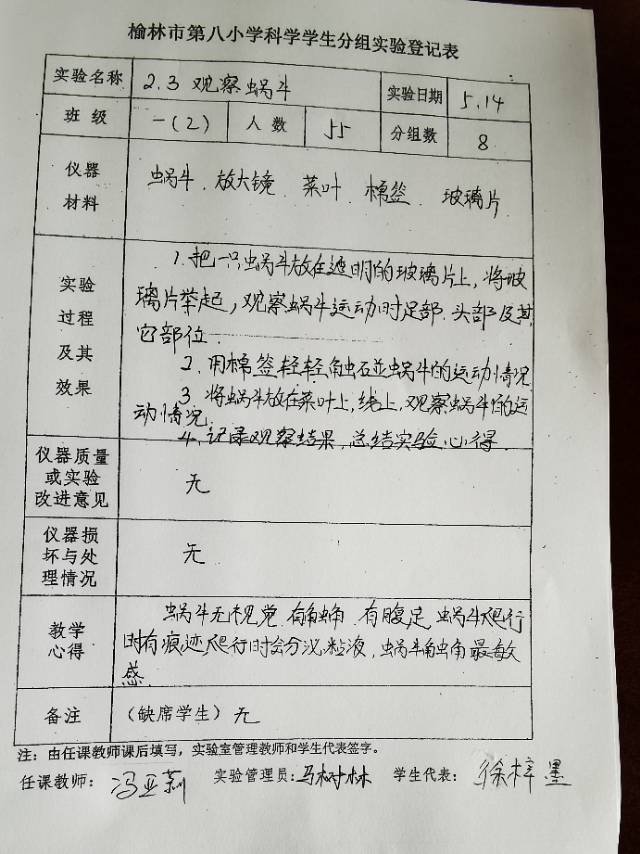 榆林市第八小学科学学生分组实验登记表
实验名称 2.3 观察蜗牛 实验日期 5.14
班 级 一(2) 人 数 55 分组数 8
仪器
材料
蜗牛、放大镜、菜叶、棉签、玻璃片
实验
过程
及其
效果
1. 把一只蜗牛放在透明的玻璃片上,将玻
璃片举起,观察蜗牛运动时足部、头部及其
它部位
2. 用棉签轻轻触碰蜗牛的运动情况
3. 将蜗牛放在菜叶上,线上,观察蜗牛的运
动情况.
4. 记录观察结果,总结实验心得.
仪器质量
或实验
改进意见
无
仪器损
坏与处
理情况
无
教学
心得
蜗牛无视觉,有触角,有腹足,蜗牛爬行
时有痕迹,爬行时会分泌粘液,蜗牛触角最敏
感.
备注 (缺席学生)无
注:由任课教师课后填写,实验室管理教师和学生代表签字。
任课教师: 冯亚莉 实验管理员:马树林 学生代表: 徐梓墨